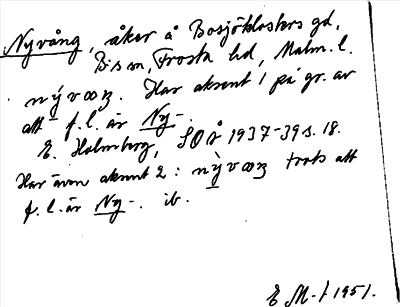 Nyvång, åker å Bosjöklosters gd,
Bs sn, Frosta hd, Malm. l.
nývaaʒ. Har aksent 1 på gr. av
att f. l. är Ny-.
E. Holmberg, SOÅ 1937-39 s. 18.
Har även aksent 2: nỳvaaʒ trots att
f. l. är Ny-. ib.
E M-t 1951.